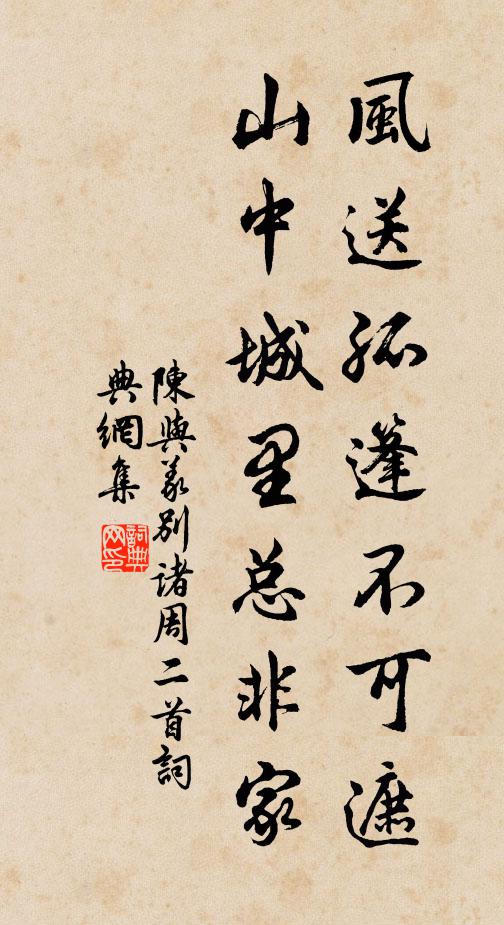 風送孤篷不可遮
山中城里总非家
陳與義別諸周二首詞
典網集
詞典网印